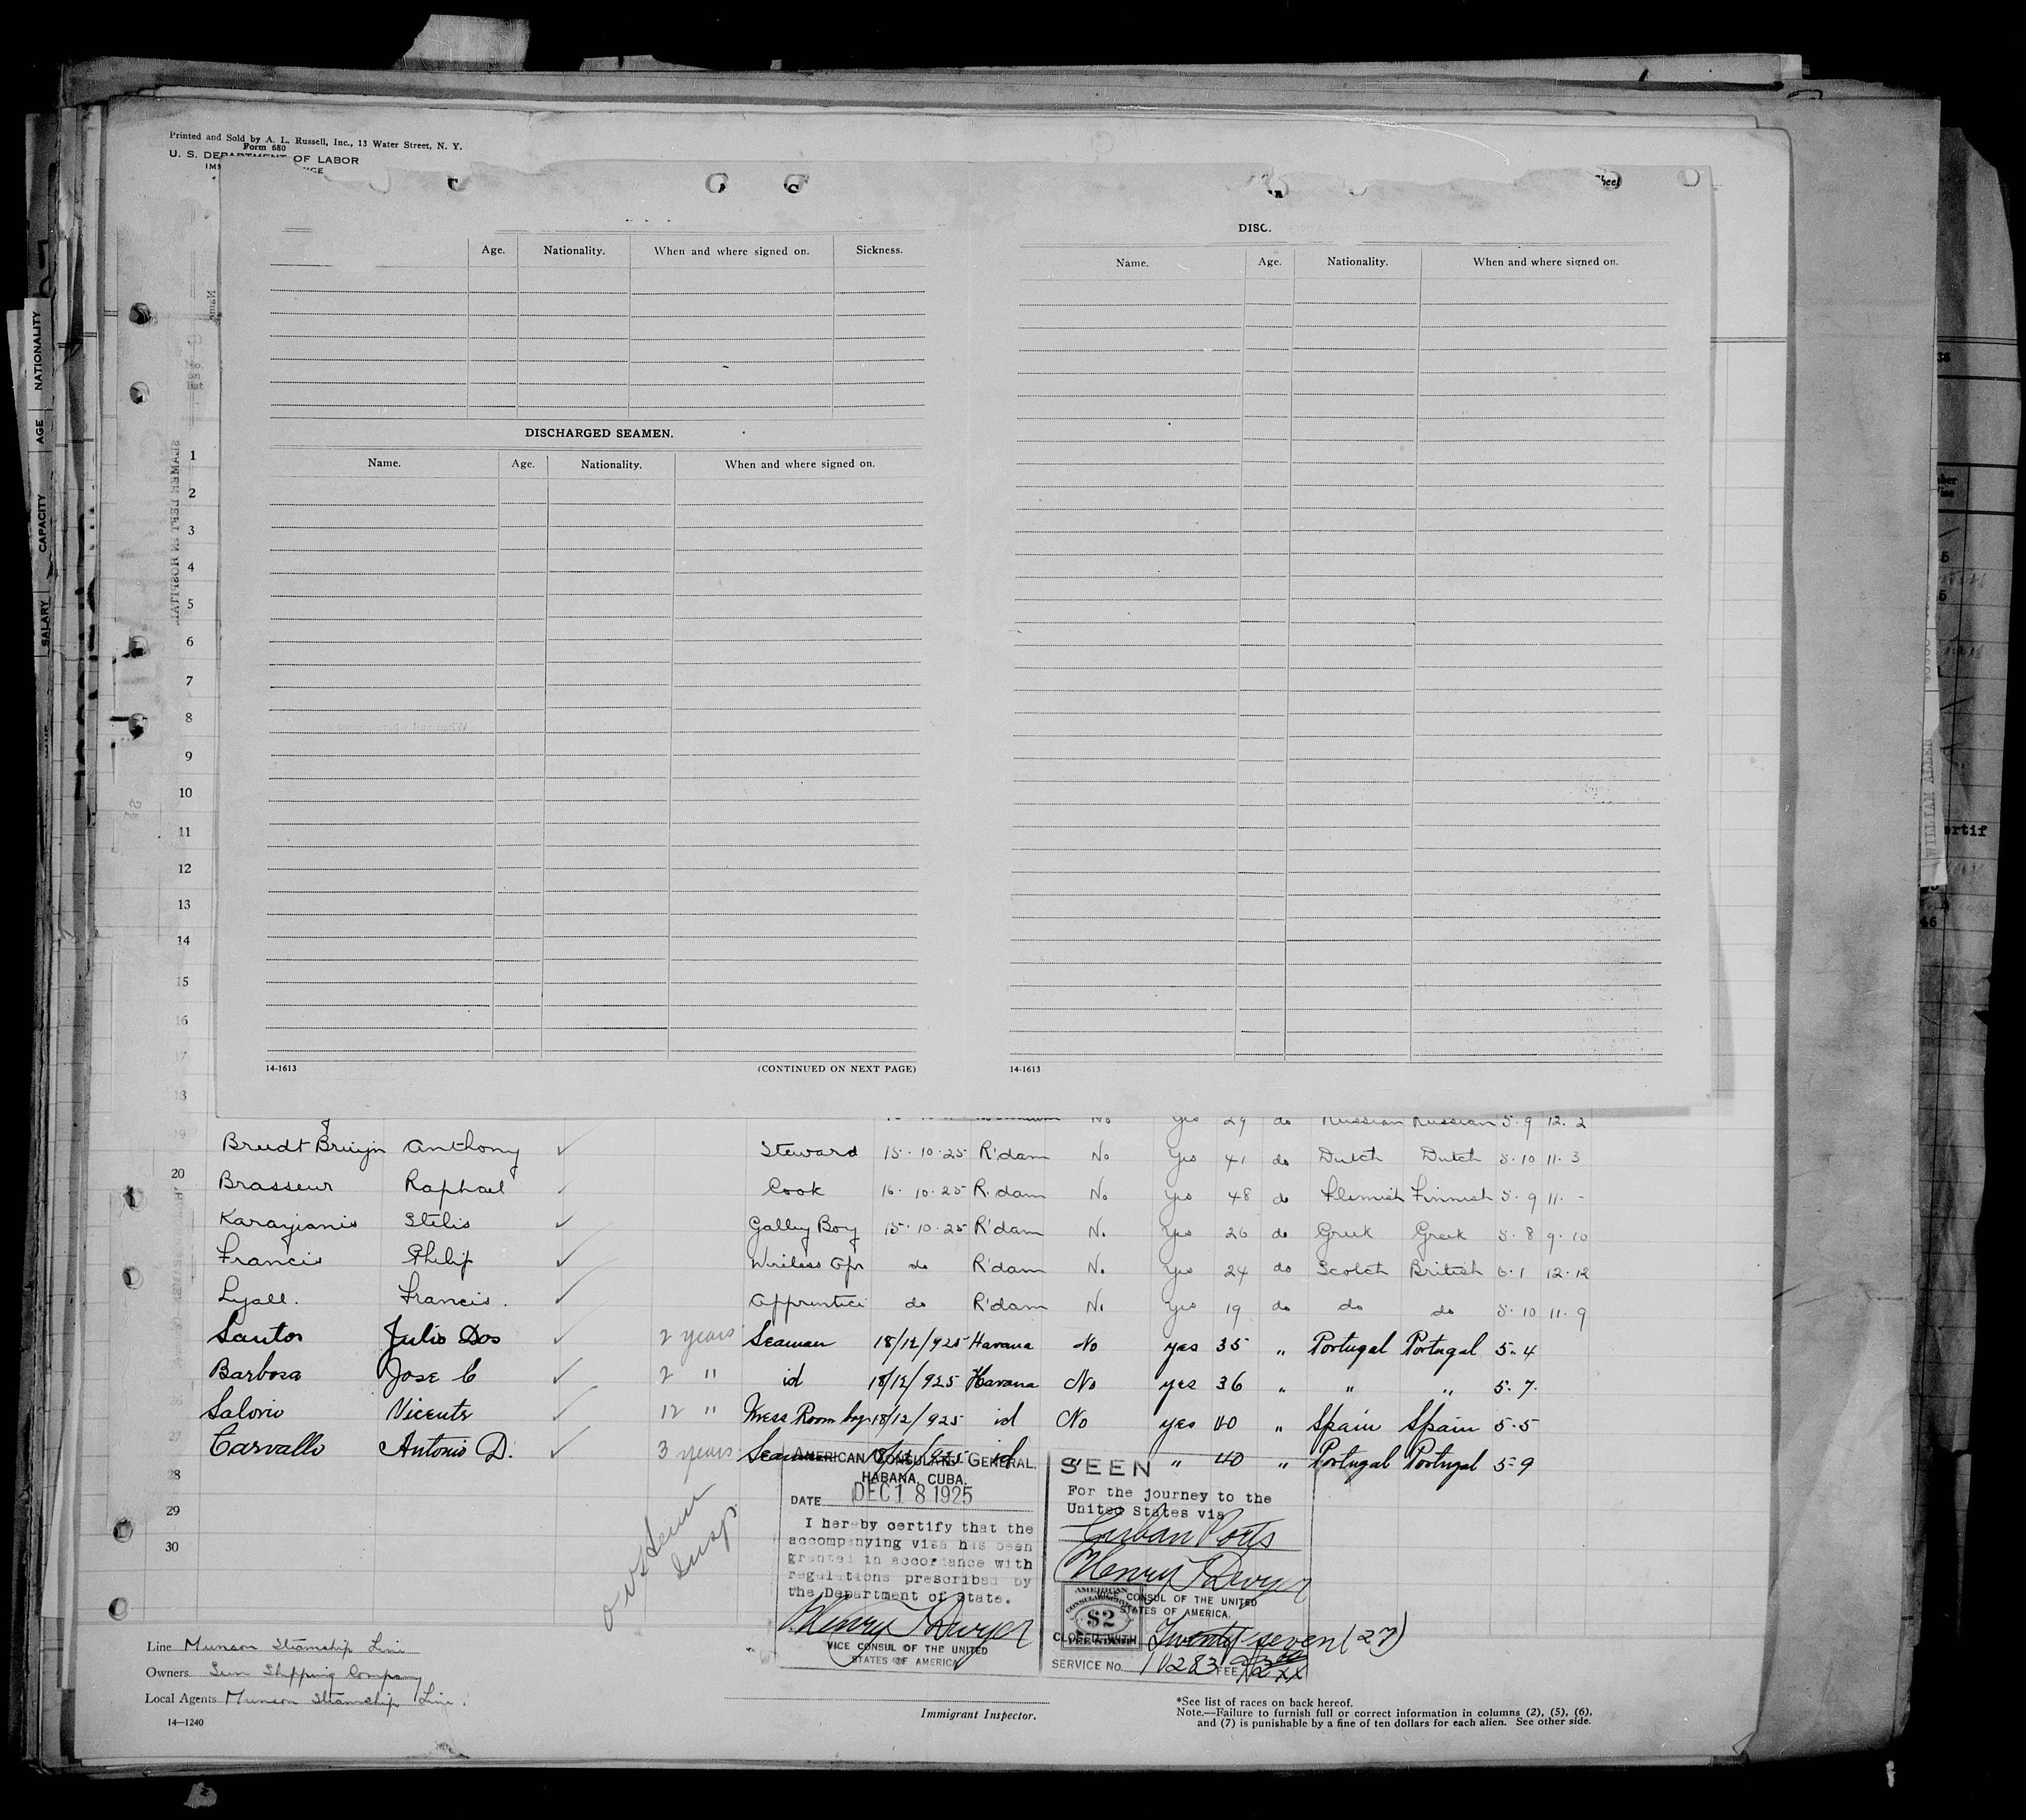 Printed and Sold by A. L. Russell, Inc., 13 Water Street, N. Y.
Form 680
U. S. DEPARTMENT OF LABOR
Sheet
Age. Nationality. When and where signed on. Sickness.
DISCHARGED SEAMEN.
Name. Age. Nationality. When and where signed on.
14-1613 (CONTINUED ON NEXT PAGE)
DISC.
Name. Age. Nationality. When and where signed on.
14-1613
NATIONALITY
AGE
CAPACITY
SALARY
No. on list
1
2
3
4
5
6
7
8
9
10
11
12
13
14
15
16
17
18
No Yes 29 do Russian Russian 5.9 12.2
19 Bruijn Anthony ✓ Steward 15.10.25 R'dam No Yes 41 do Dutch Dutch 5.10 11.3
20 Brasseur Raphael ✓ Cook 16.10.25 R.dam No Yes 48 do Flemish Finnish 5.9 11.-
Karayianis Stelis ✓ Galley Boy 15.10.25 R'dam No. Yes 26 do Greek Greek 5.8 9.10
Francis Philip ✓ Wireless Opr do R'dam No. Yes 24 do Scotch British 6.1 12.12
Lyall. Francis. ✓ Apprentice do R'dam No. Yes 19 do do do 5.10 11.9
Santos Julio Dos ✓ 2 years Seaman 18/12/925 Havana No yes 35 " Portugal Portugal 5.4
Barbosa Jose C ✓ 2 " id 18/12/925 Havana No yes 36 " " " 5.7.
Salorio Vicente ✓ 12 " Mess Room boy 18/12/925 id No yes 40 " Spain Spain 5.5
27 Carvallo Antonio D. ✓ 3 years Seaman 18/12/925 id " " 40 " Portugal Portugal 5.9
28
29
30
AMERICAN CONSULATE GENERAL.
HABANA, CUBA.
DATE DEC 18 1925
I hereby certify that the
accompanying visa has been
granted in accordance with
regulations prescribed by
the Department of State.
Henry T Dwyer
VICE CONSUL OF THE UNITED
STATES OF AMERICA
SEEN
For the journey to the
United States via
Cuban Ports
Henry T Dwyer
VICE CONSUL OF THE UNITED
STATES OF AMERICA.
AMERICAN
CONSULAR SERVICE
$2
FEE STAMP
CLOSED WITH Twenty-seven (27)
SERVICE No. 10283 FEE
Line Munson Steamship Line
Owners Sun Shipping Company
Local Agents Munson Steamship Line.
14—1240
Immigrant Inspector.
*See list of races on back hereof.
Note.—Failure to furnish full or correct information in columns (2), (5), (6),
and (7) is punishable by a fine of ten dollars for each alien. See other side.